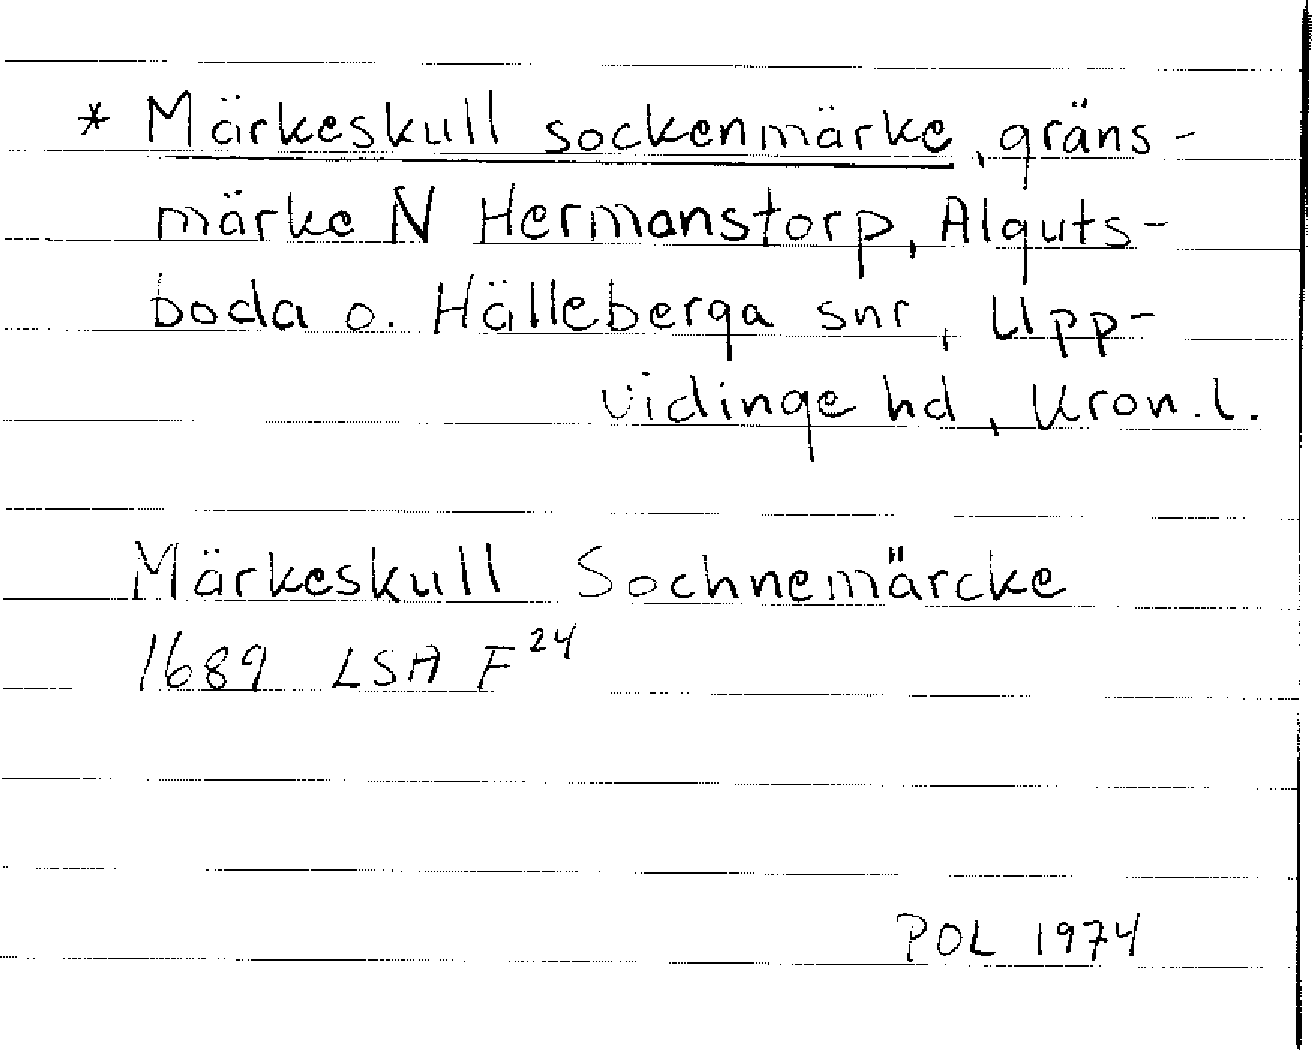 * Märkeskull sockenmärke, gräns-
märke N Hermanstorp, Alguts-
boda o. Hälleberga snr, Upp-
vidinge hd, Kron. l.
Märkeskull Sochnemärcke
1689 LSA F²⁴
POL 1974